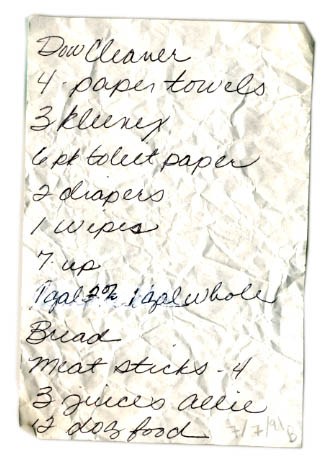 Dow Cleaner
4 - paper towels
3 kleenex
6 pk toilet paper
2 diapers
1 wipes
7 up
1 gal 2% 1 gal whole
Bread
meat sticks - 4
3 juices allie
12 dog food
7/7/98